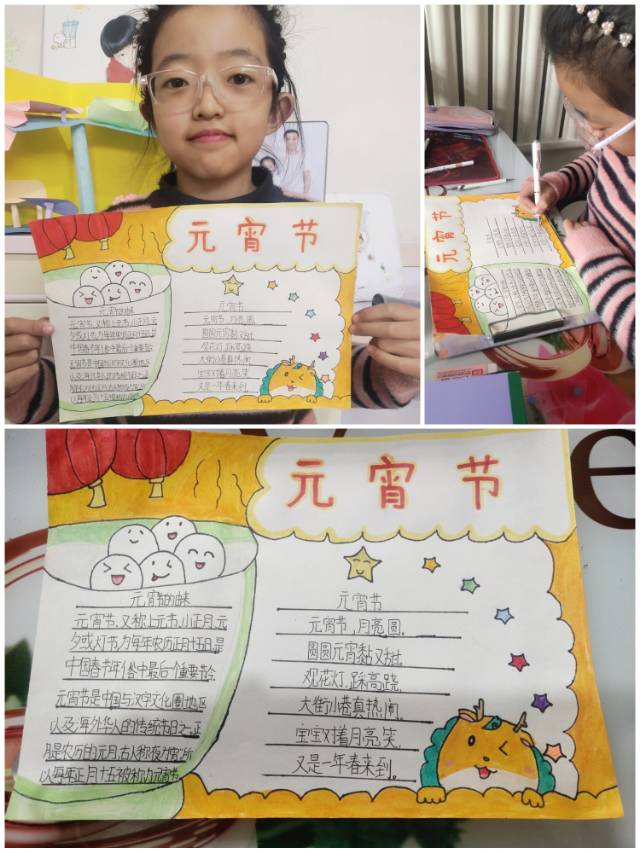 元宵节
元宵节的由来
元宵节，又称上元节、小正月、元
夕或灯节，为每年农历正月十五日，是
中国春节年俗中最后一个重要节令。
元宵节是中国与汉字文化圈地区
以及海外华人的传统节日之一。正
月是农历的元月，古人称“夜”为“宵”，所
以每年正月十五被称为元宵节
元宵节
元宵节，月亮圆，
圆圆元宵黏又甜。
观花灯，踩高跷，
大街小巷真热闹。
宝宝对着月亮笑，
又是一年春来到。